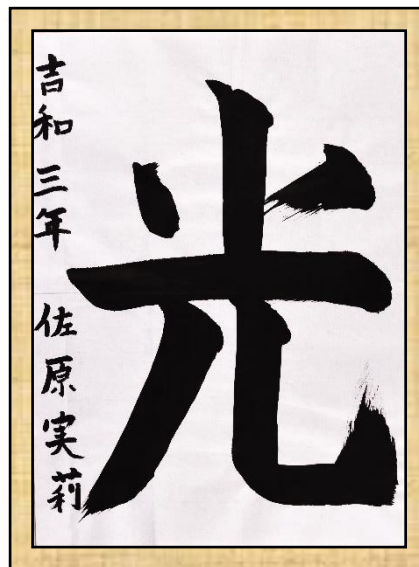 光
吉和三年 佐原実莉